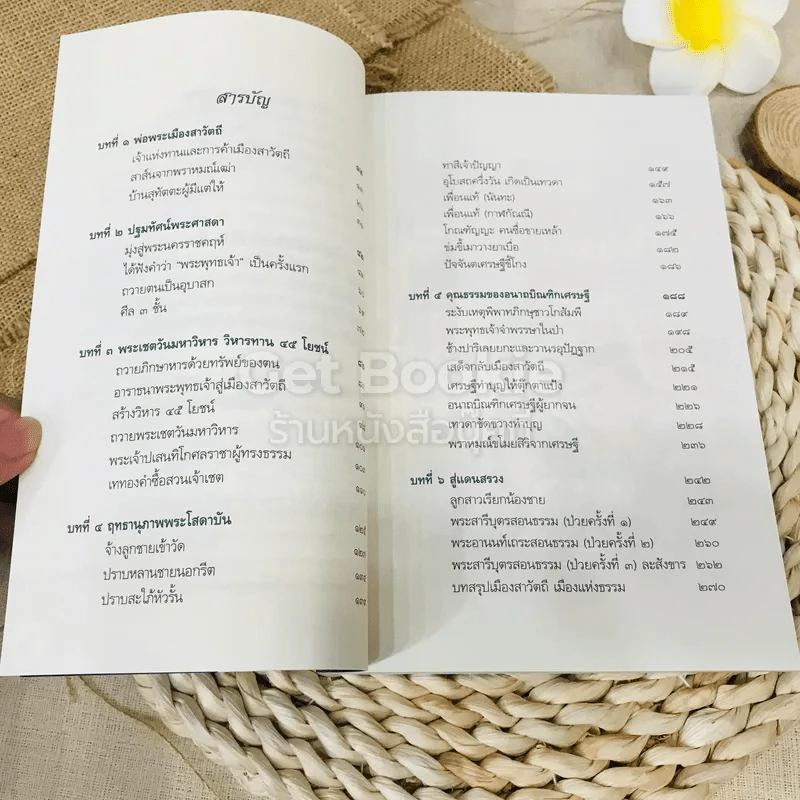 สารบัญ
บทที่ ๑ พ่อพระเมืองสาวัตถี
เจ้าแห่งทานและการค้าเมืองสาวัตถี
สาส์นจากพราหมณ์เฒ่า
บ้านสุทัตตะผู้มีแต่ให้
บทที่ ๒ ปฐมทัศน์พระศาสดา
มุ่งสู่พระนครราชคฤห์
ได้ฟังคำว่า “พระพุทธเจ้า” เป็นครั้งแรก
ถวายตนเป็นอุบาสก
ศีล ๓ ชั้น
บทที่ ๓ พระเชตวันมหาวิหาร วิหารทาน ๔๕ โยชน์
ถวายภิกษาหารด้วยทรัพย์ของตน
อาราธนาพระพุทธเจ้าสู่เมืองสาวัตถี
สร้างวิหาร ๔๕ โยชน์
ถวายพระเชตวันมหาวิหาร
พระเจ้าปเสนทิโกศลราชาผู้ทรงธรรม ๑๐๓
เททองคำซื้อสวนเจ้าเชต ๑๑๐
บทที่ ๔ ฤทธานุภาพพระโสดาบัน ๑๒๕
จ้างลูกชายเข้าวัด ๑๒๗
ปราบหลานชายนอกรีต
ปราบสะใภ้หัวรั้น
ทาสีเจ้าปัญญา ๑๔๙
อุโบสถครึ่งวัน เกิดเป็นเทวดา ๑๕๗
เพื่อนแท้ (นันทะ) ๑๖๓
เพื่อนแท้ (กาฬกัณณี) ๑๖๖
โกณฑัญญะ คนซื่อขายเหล้า ๑๗๕
ข่มขี้เมาวางยาเบื่อ ๑๘๒
ปัจจันตเศรษฐีขี้โกง ๑๘๖
บทที่ ๕ คุณธรรมของอนาถบิณฑิกเศรษฐี ๑๘๘
ระงับเหตุพิพาทภิกษุชาวโกสัมพี ๑๘๙
พระพุทธเจ้าจำพรรษาในป่า ๑๙๘
ช้างปาริเลยยกะและวานรอุปัฏฐาก ๒๐๕
เสด็จกลับเมืองสาวัตถี ๒๑๕
เศรษฐีทำบุญให้ตุ๊กตาแป้ง ๒๒๑
อนาถบิณฑิกเศรษฐีผู้ยากจน ๒๒๖
เทวดาขัดขวางทำบุญ ๒๒๘
พราหมณ์ขโมยสิริจากเศรษฐี ๒๓๖
บทที่ ๖ สู่แดนสรวง ๒๔๒
ลูกสาวเรียกน้องชาย ๒๔๓
พระสารีบุตรสอนธรรม (ป่วยครั้งที่ ๑) ๒๔๙
พระอานนท์เถระสอนธรรม (ป่วยครั้งที่ ๒) ๒๖๐
พระสารีบุตรสอนธรรม (ป่วยครั้งที่ ๓) ละสังขาร ๒๖๒
บทสรุปเมืองสาวัตถี เมืองแห่งธรรม ๒๗๐